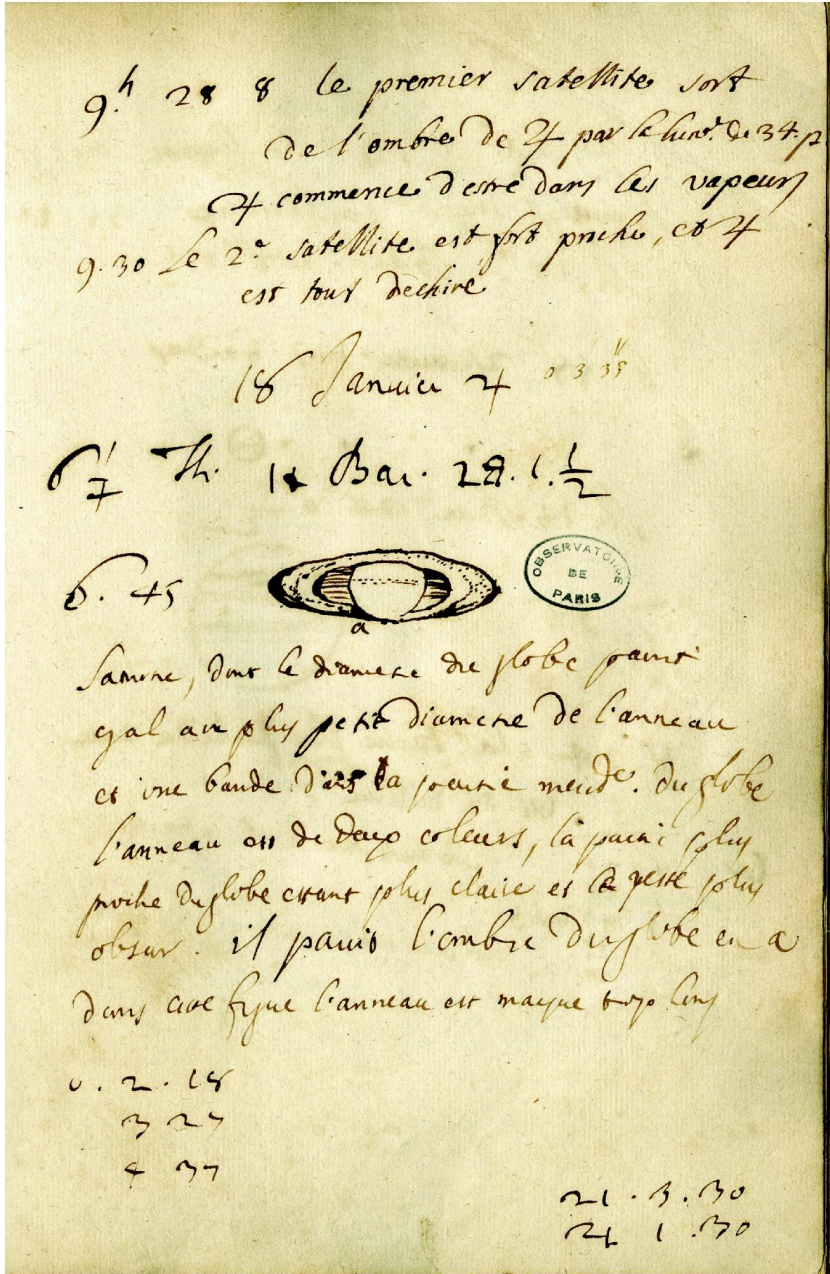 9.h 28 8 le premier satellite sort
de l'ombre de ♃ par la lun. de 34. p
♃ commence d'estre dans les vapeurs
9.30 Le 2e satellite est fort proche, et ♃
est tout dechiré
18 Janvier ♃ 0 3 35"
6 1/7 Th. Bar. 28. 1. 1/2
6. 45
OBSERVATOIRE
DE
PARIS
a
Saturne, dont le diametre du globe paroist
egal au plus petit diametre de l'anneau
et une bande dans la partie merid. du globe
l'anneau est de deux coleurs, la partie plus
proche du globe estant plus claire et le reste plus
obscur. il paroist l'ombre du globe en a
dans cette figure l'anneau est marque trop long
0. 2. 18
3 27
4 37
21. 3. 30
21 1. 30